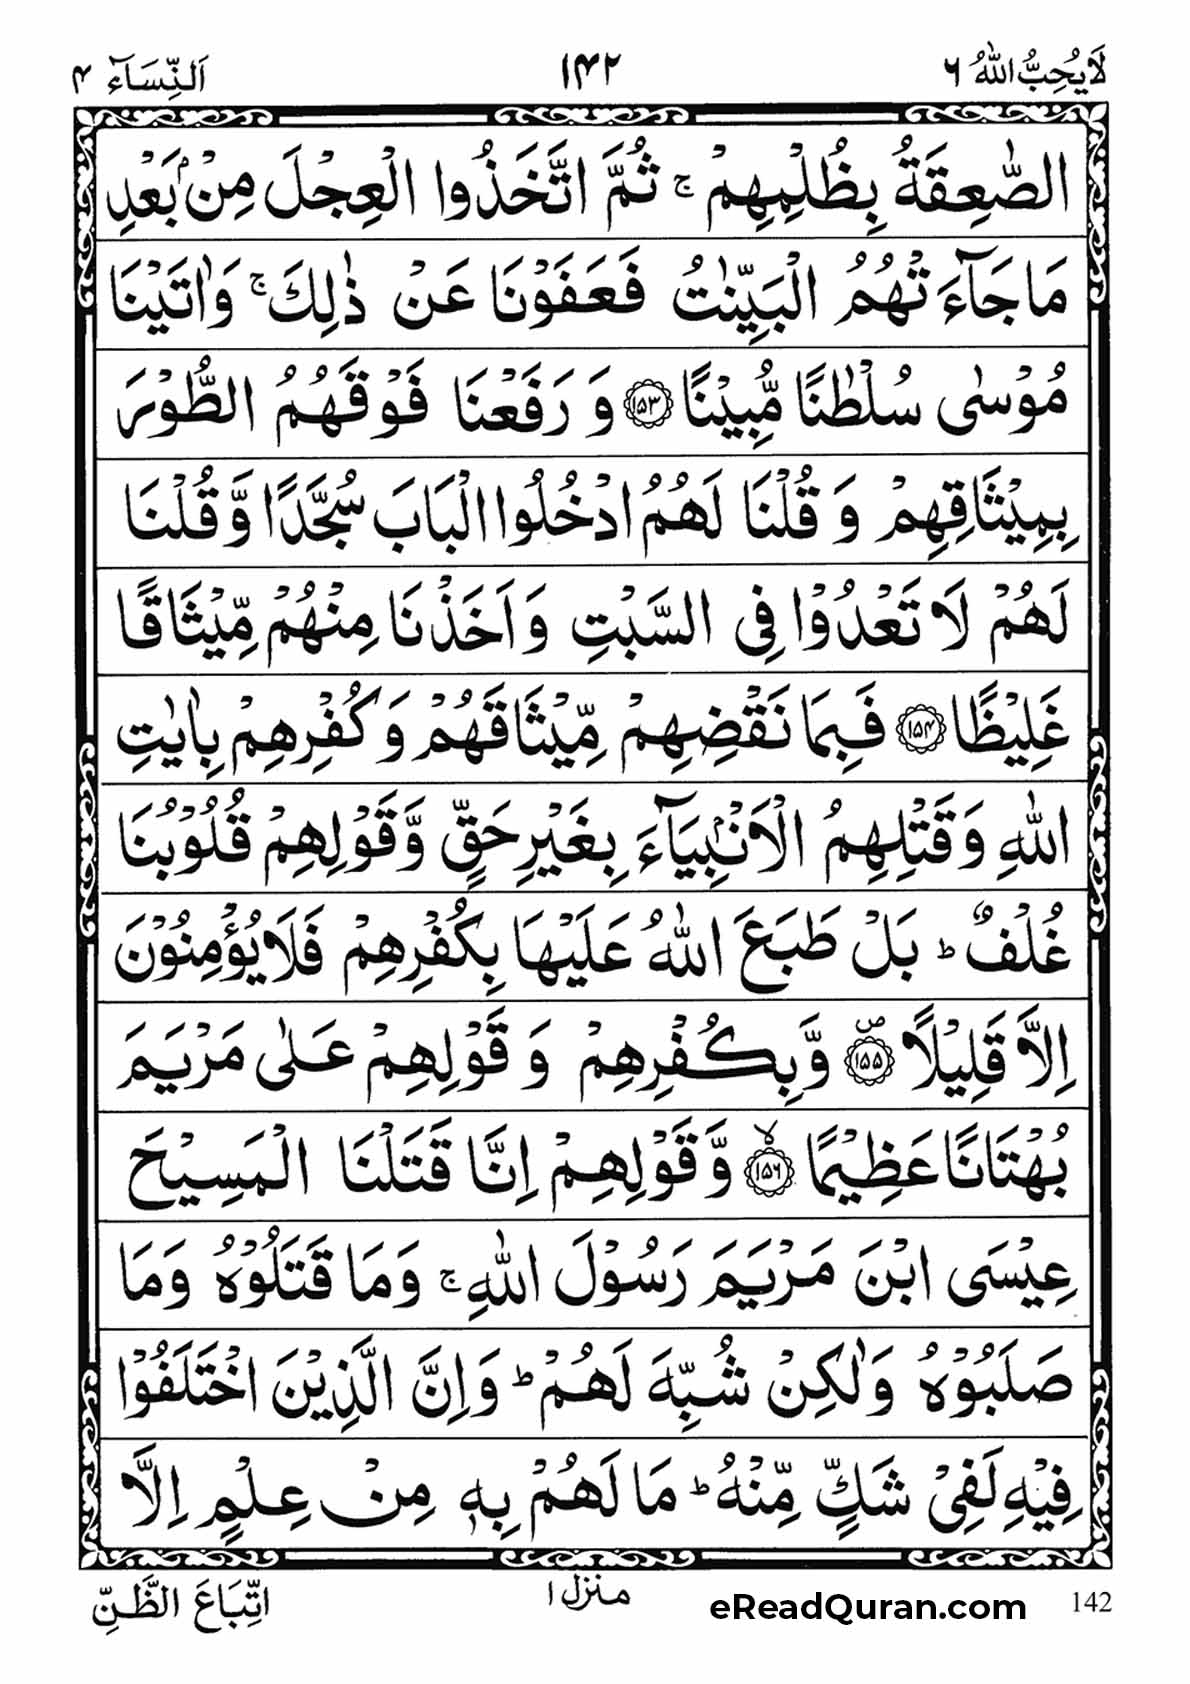 لَا يُحِبُّ اللّٰهُ ۶ ۱۴۲ اَلنِّسَآء ۴
الصّٰعِقَةُ بِظُلْمِهِمْ ۚ ثُمَّ اتَّخَذُوا الْعِجْلَ مِنْۢ بَعْدِ
مَا جَآءَتْهُمُ الْبَيِّنٰتُ فَعَفَوْنَا عَنْ ذٰلِكَ ۚ وَاٰتَيْنَا
مُوْسٰى سُلْطٰنًا مُّبِيْنًا ﴿۱۵۳﴾ وَ رَفَعْنَا فَوْقَهُمُ الطُّوْرَ
بِمِيْثَاقِهِمْ وَ قُلْنَا لَهُمُ ادْخُلُوا الْبَابَ سُجَّدًا وَّ قُلْنَا
لَهُمْ لَا تَعْدُوْا فِى السَّبْتِ وَ اَخَذْنَا مِنْهُمْ مِّيْثَاقًا
غَلِيْظًا ﴿۱۵۴﴾ فَبِمَا نَقْضِهِمْ مِّيْثَاقَهُمْ وَ كُفْرِهِمْ بِاٰيٰتِ
اللّٰهِ وَ قَتْلِهِمُ الْاَنْۢبِيَآءَ بِغَيْرِ حَقٍّ وَّ قَوْلِهِمْ قُلُوْبُنَا
غُلْفٌ ؕ بَلْ طَبَعَ اللّٰهُ عَلَيْهَا بِكُفْرِهِمْ فَلَا يُؤْمِنُوْنَ
اِلَّا قَلِيْلًا ﴿۱۵۵﴾ ۪ وَّ بِكُفْرِهِمْ وَ قَوْلِهِمْ عَلٰى مَرْيَمَ
بُهْتَانًا عَظِيْمًا ﴿۱۵۶﴾ ۙ وَّ قَوْلِهِمْ اِنَّا قَتَلْنَا الْمَسِيْحَ
عِيْسَى ابْنَ مَرْيَمَ رَسُوْلَ اللّٰهِ ۚ وَ مَا قَتَلُوْهُ وَ مَا
صَلَبُوْهُ وَلٰكِنْ شُبِّهَ لَهُمْ ؕ وَ اِنَّ الَّذِيْنَ اخْتَلَفُوْا
فِيْهِ لَفِىْ شَكٍّ مِّنْهُ ؕ مَا لَهُمْ بِهٖ مِنْ عِلْمٍ اِلَّا
اتِّبَاعَ الظَّنِّ منزل ۱ eReadQuran.com 142